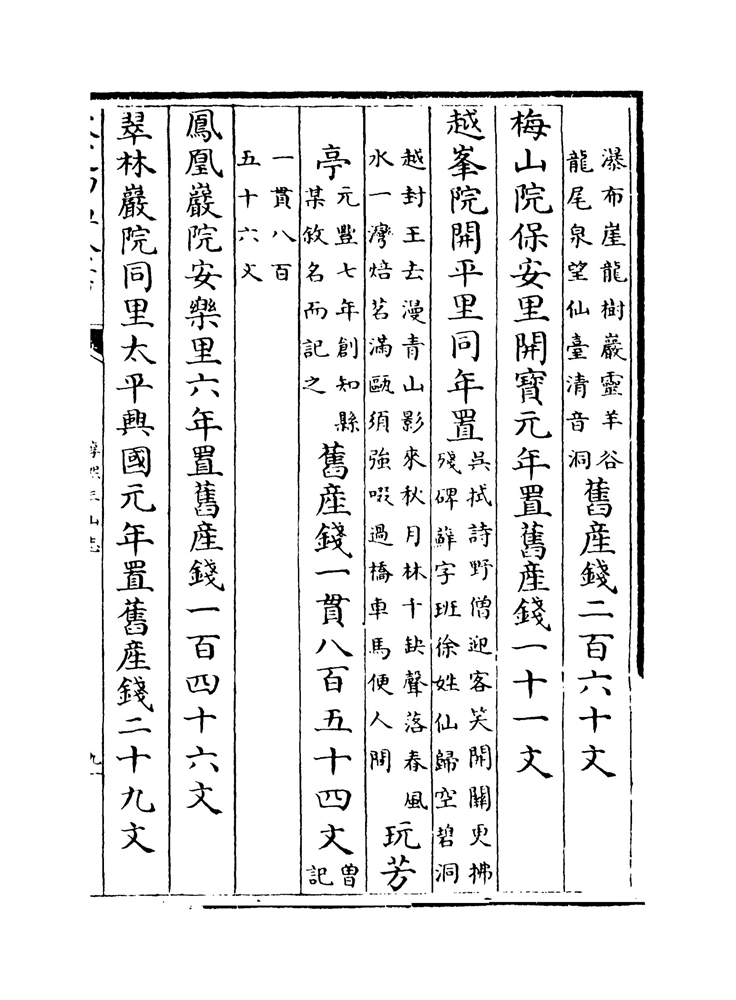 瀑布崖龍樹巖靈羊谷
龍尾泉望仙臺清音洞
舊産錢二百六十文
梅山院保安里開寶元年置舊産錢一十一文
越峯院開平里同年置
吳拭詩野僧迎客笑開關更拂
殘碑蘚字班徐姓仙歸空碧洞
越封王去漫青山影來秋月林十缺聲落春風
水一灣焙茗滿甌須強啜過橋車馬便人間
玩芳
亭
元豐七年創知縣
某敘名而記之
舊産錢一貫八百五十四文
曽
記
一貫八百
五十六文
鳳凰巖院安樂里六年置舊産錢一百四十六文
翠林巖院同里太平興國元年置舊産錢二十九文
淳熙三山志